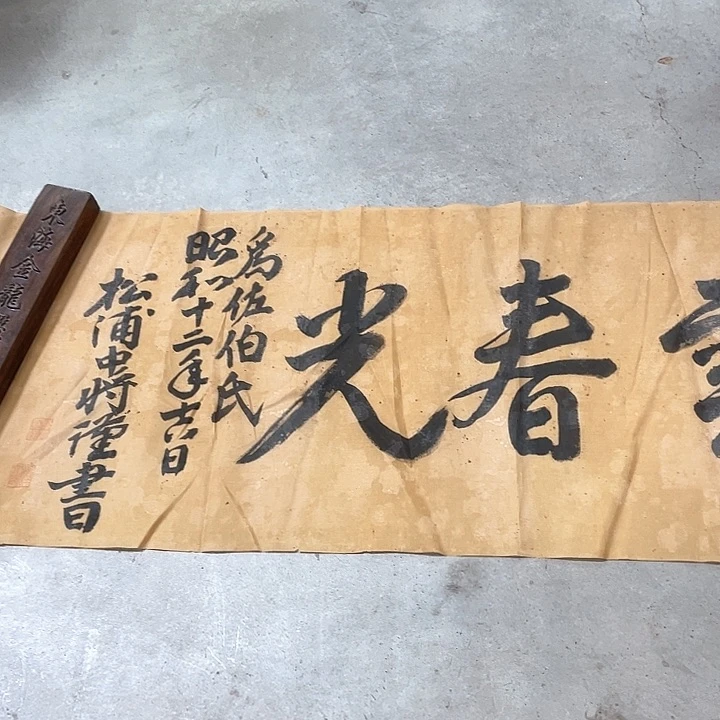 春光
爲佐伯氏
昭和十二年吉日
松浦中将謹書
東海金龍